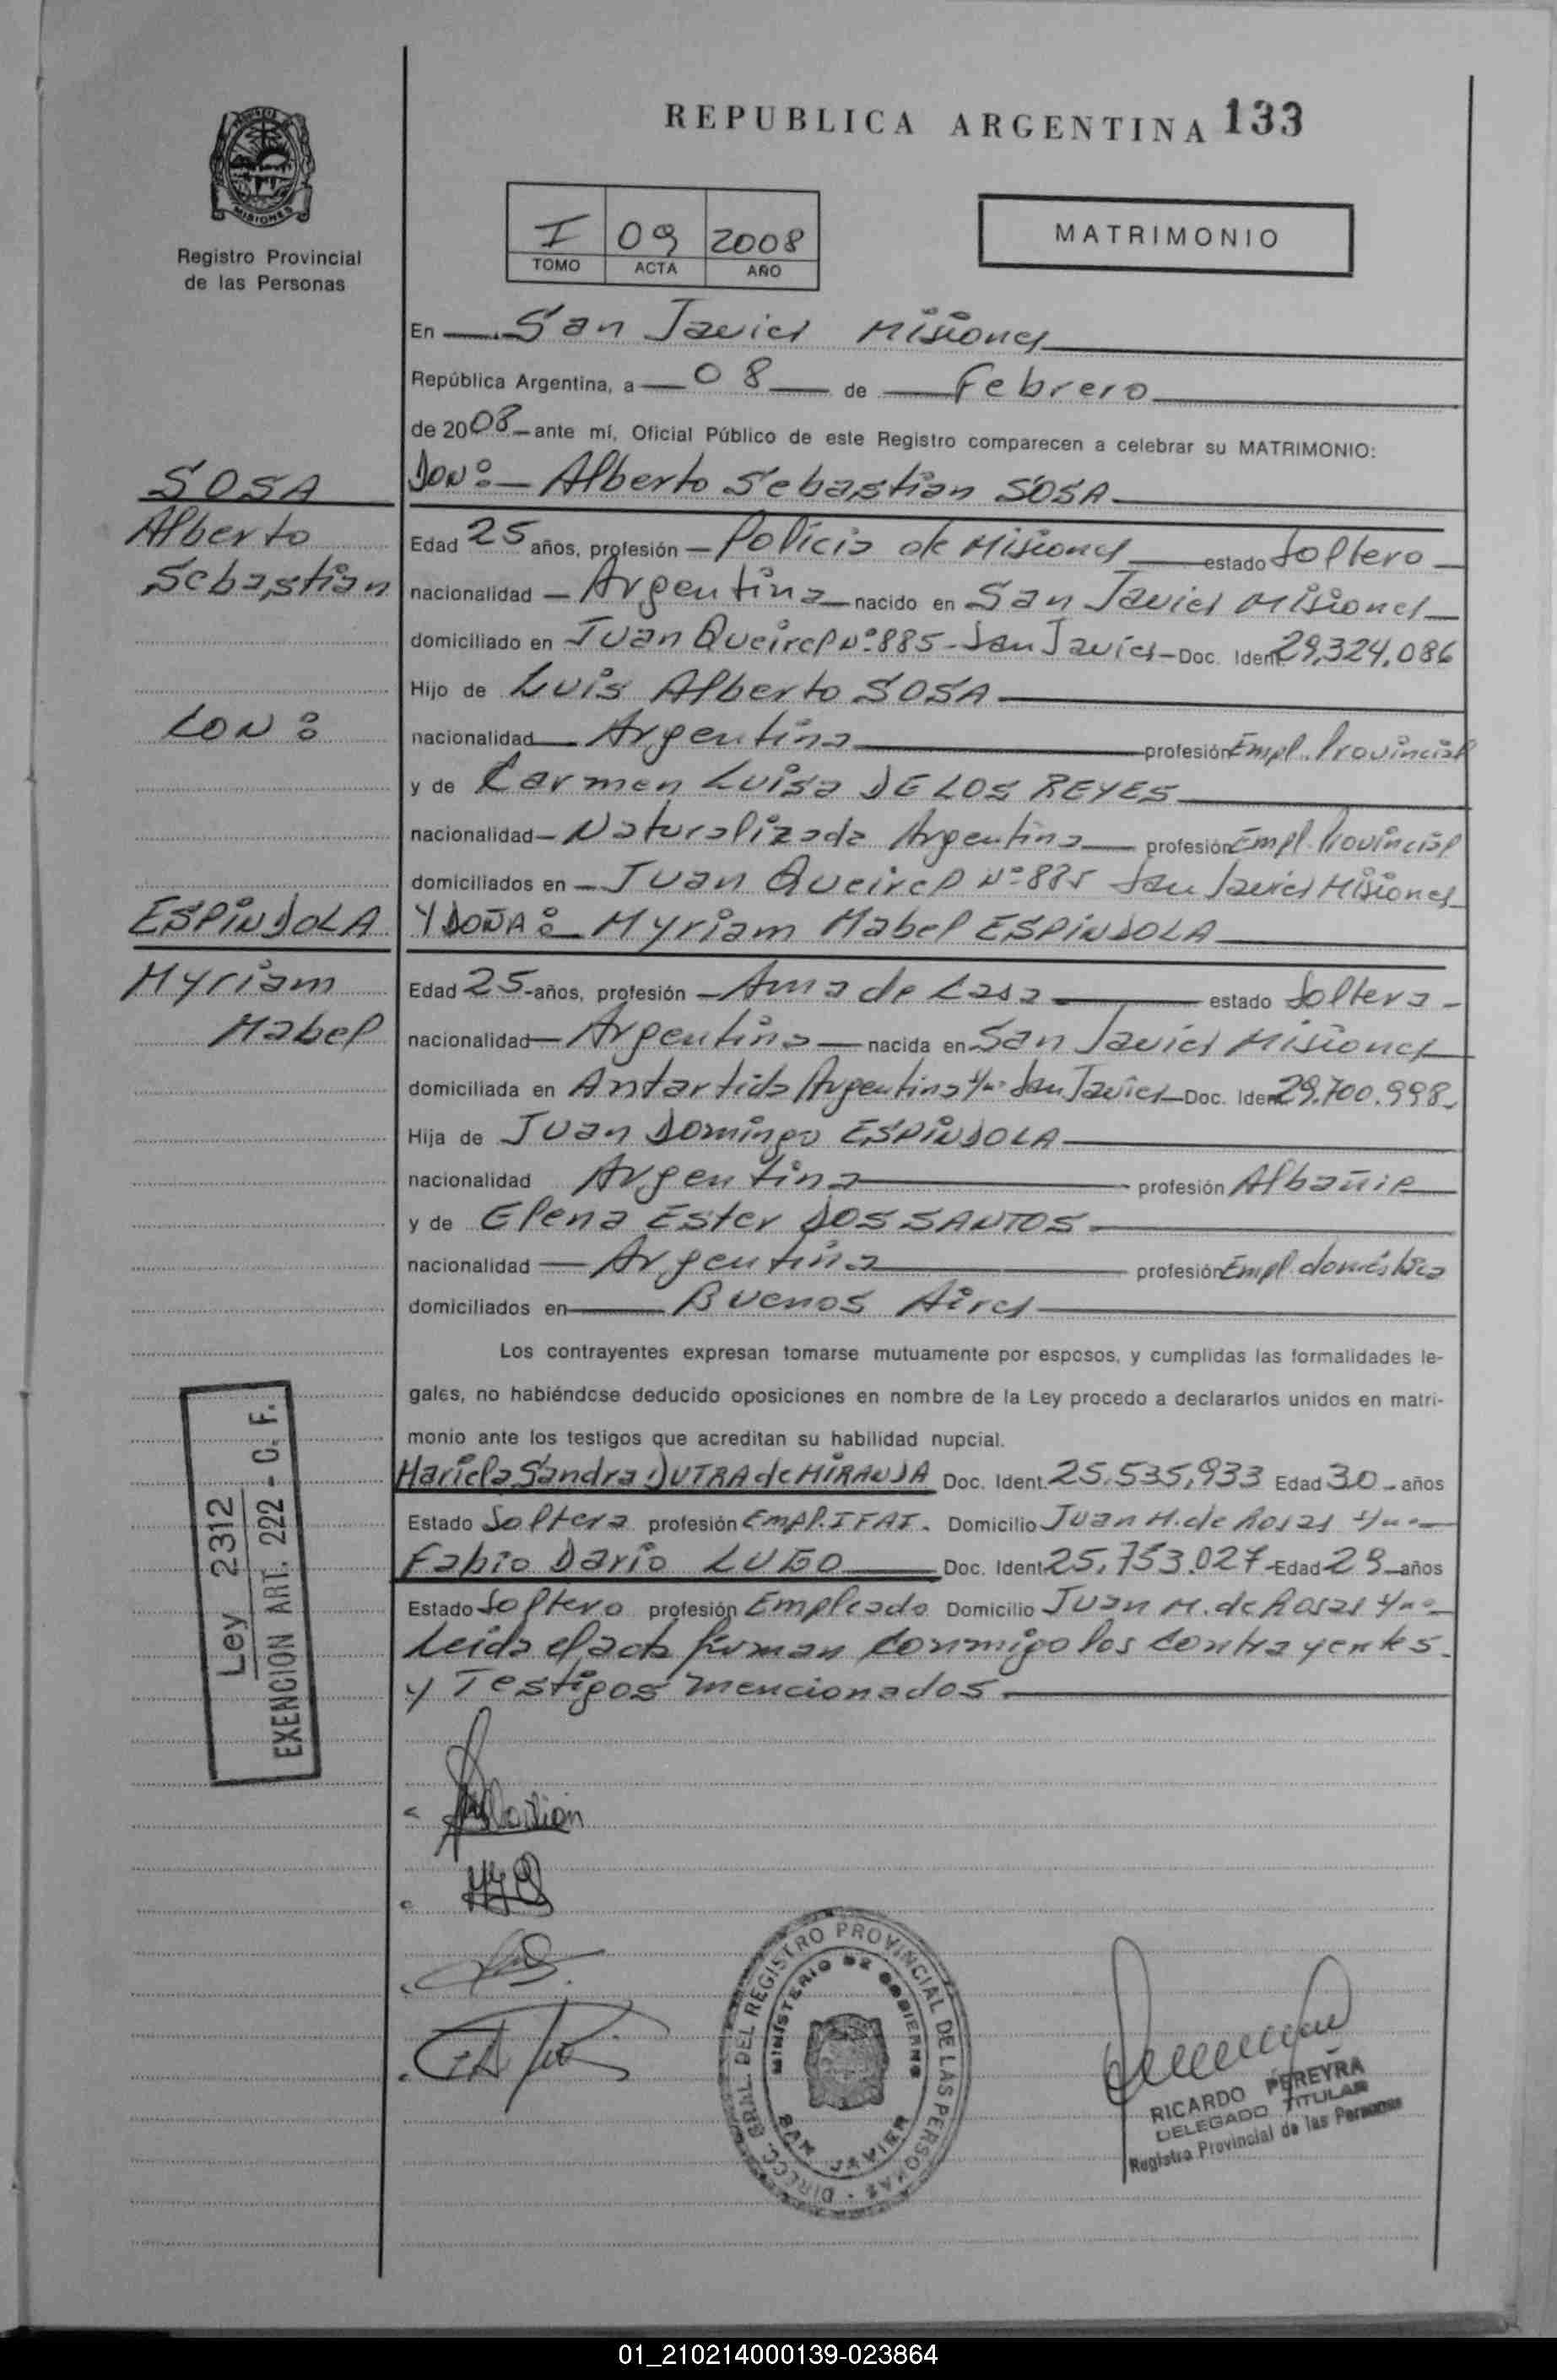 REPUBLICA ARGENTINA 133
MISIONES
Registro Provincial
de las Personas
I 09 2008
TOMO ACTA AÑO
MATRIMONIO
En San Javier Misiones
República Argentina, a 08 de Febrero
de 2008 ante mí, Oficial Público de este Registro comparecen a celebrar su MATRIMONIO:
SOSA
Alberto
Sebastian
CON:
ESPINDOLA
Myriam
Mabel
DON: Alberto Sebastian SOSA
Edad 25 años, profesión Policia de Misiones estado Soltero
nacionalidad Argentina nacido en San Javier Misiones
domiciliado en Juan Queirel Nº 885 - San Javier - Doc. Ident. 29.324.086
Hijo de Luis Alberto SOSA
nacionalidad Argentina profesión Empl. Provincial
y de Carmen Luisa DE LOS REYES
nacionalidad Naturalizada Argentina profesión Empl. Provincial
domiciliados en Juan Queirel Nº 885 San Javier Misiones
Y DOÑA: Myriam Mabel ESPINDOLA
Edad 25 años, profesión Ama de Casa estado Soltera
nacionalidad Argentina nacida en San Javier Misiones
domiciliada en Antartida Argentina s/nº San Javier Doc. Ident. 29.700.998
Hija de Juan Domingo ESPINDOLA
nacionalidad Argentina profesión Albañil
y de Elena Ester DOS SANTOS
nacionalidad Argentina profesión Empl. doméstica
domiciliados en Buenos Aires
Los contrayentes expresan tomarse mutuamente por esposos, y cumplidas las formalidades le-
gales, no habiéndose deducido oposiciones en nombre de la Ley procedo a declararlos unidos en matri-
monio ante los testigos que acreditan su habilidad nupcial.
Mariela Sandra DUTRA de MIRANDA Doc. Ident. 25.535.933 Edad 30 años
Estado Soltera profesión Empl. IFAI. Domicilio Juan M. de Rosas s/nº
Fabio Dario LUGO Doc. Ident. 25.753.027 Edad 29 años
Estado Soltero profesión Empleado Domicilio Juan M. de Rosas s/nº
Leida el acta firman conmigo los contrayentes
y Testigos mencionados.
Ley 2312
EXENCION ART. 222 - C. F.
DIRECC. GRAL. DEL REGISTRO PROVINCIAL DE LAS PERSONAS
MINISTERIO DE GOBIERNO
SAN JAVIER
RICARDO PEREYRA
DELEGADO TITULAR
Registro Provincial de las Personas
01_210214000139-023864